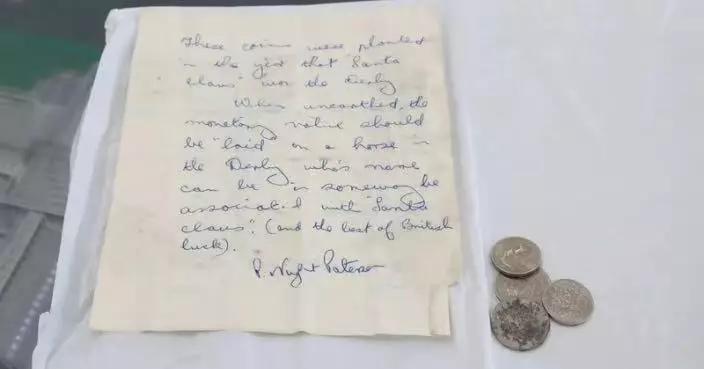 These coins were planted
in the year that "Santa
Claus" won the Derby
When unearthed, the
monetary value should
be "laid" on a horse in
the Derby who's name
can be in someway be
associated with "Santa
Claus". (and the best of British
luck).
P.